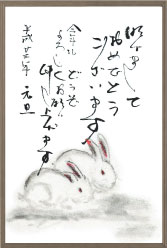 明けまして
おめでとう
ございます
今年も
どうぞ
よろしくお願い
申し上げます
平成廿三年
元旦